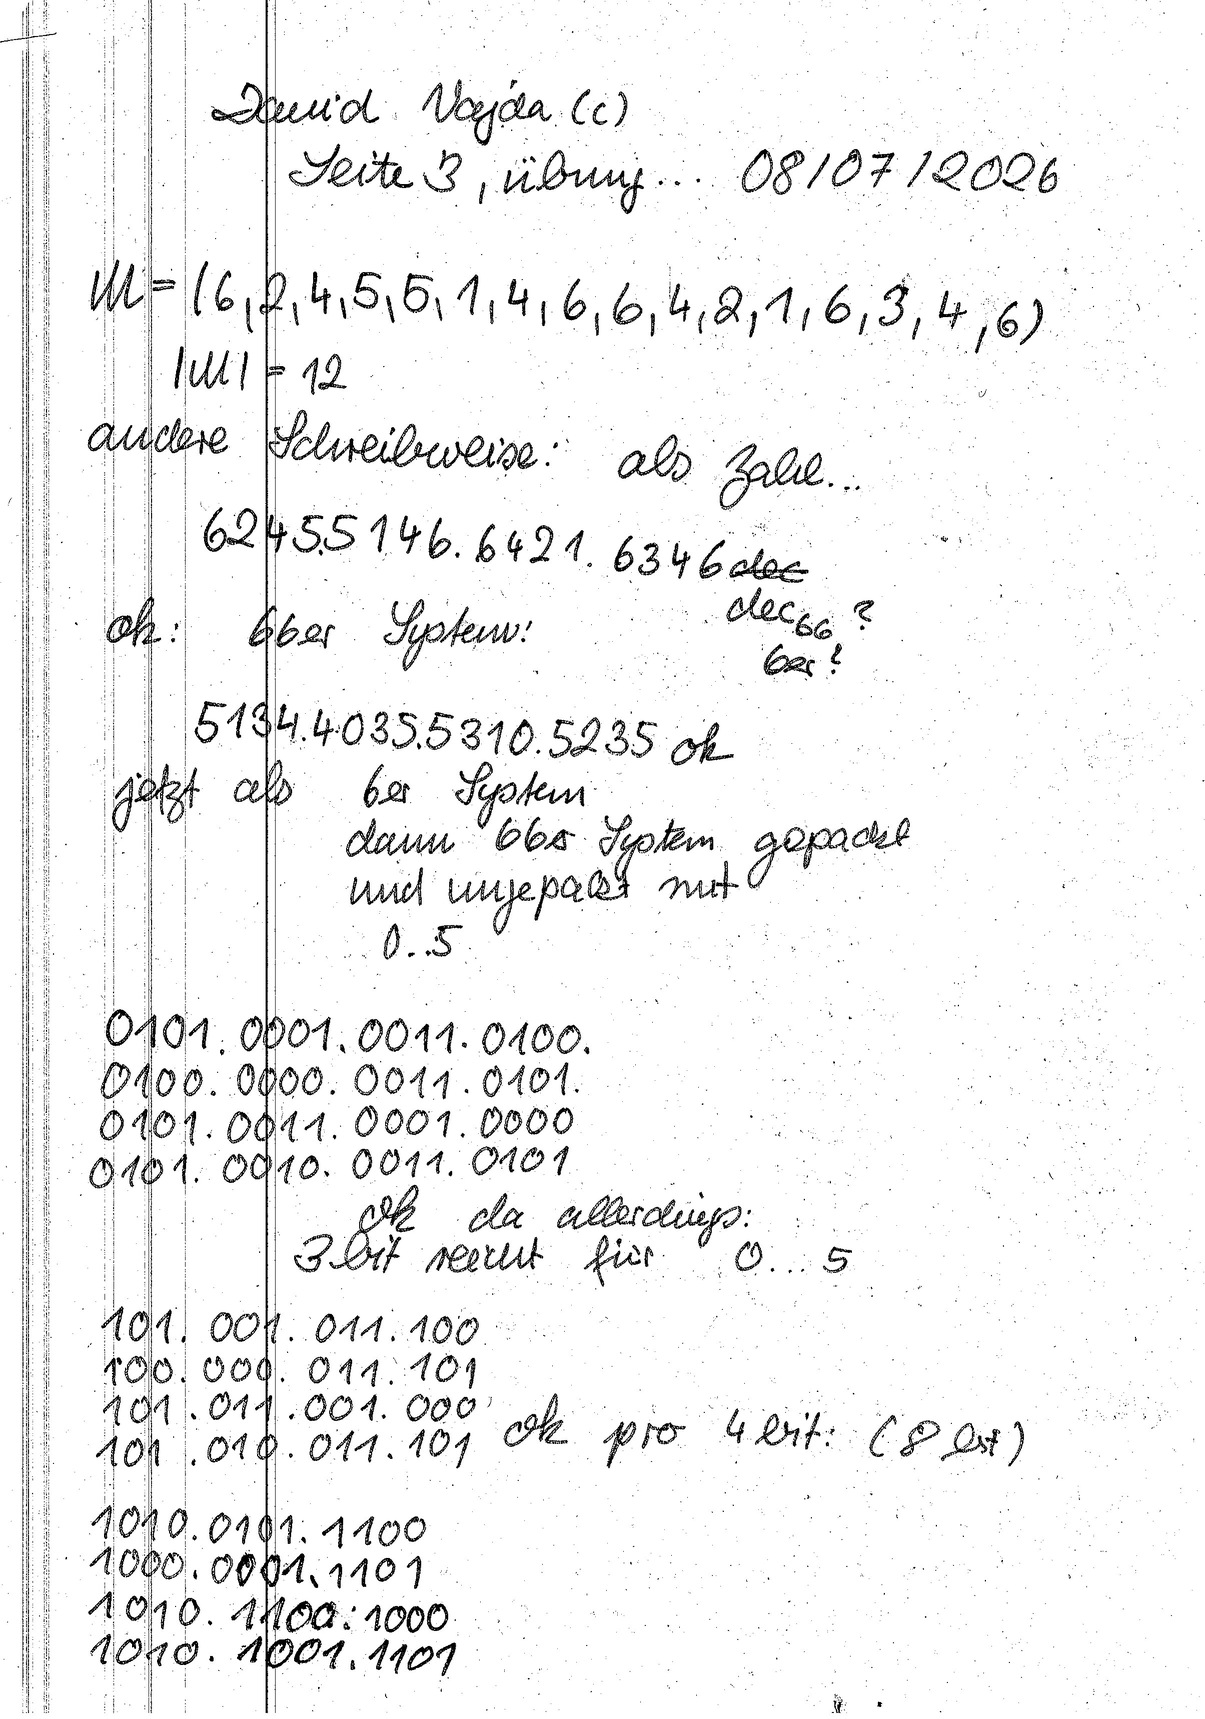 David Vajda (c)
Seite 3, übung... 08/07/2026
M = (6,2,4,5,5,1,4,6,6,4,2,1,6,3,4,6)
|M| = 12
andere Schreibweise: als Zahl...
6245.5146.6421.6346 dec
dec66 ?
ok: 66er System:
6er?
5134.4035.5310.5235 ok
jetzt als 6er System
dann 66er System gepackt
und ungepackt mit
0..5
0101.0001.0011.0100.
0100.0000.0011.0101.
0101.0011.0001.0000
0101.0010.0011.0101
ok da allerdings:
3bit reicht für 0...5
101.001.011.100
100.000.011.101
101.011.001.000
101.010.011.101 ok pro 4bit: (8bit)
1010.0101.1100
1000.0001.1101
1010.1100.1000
1010.1001.1101